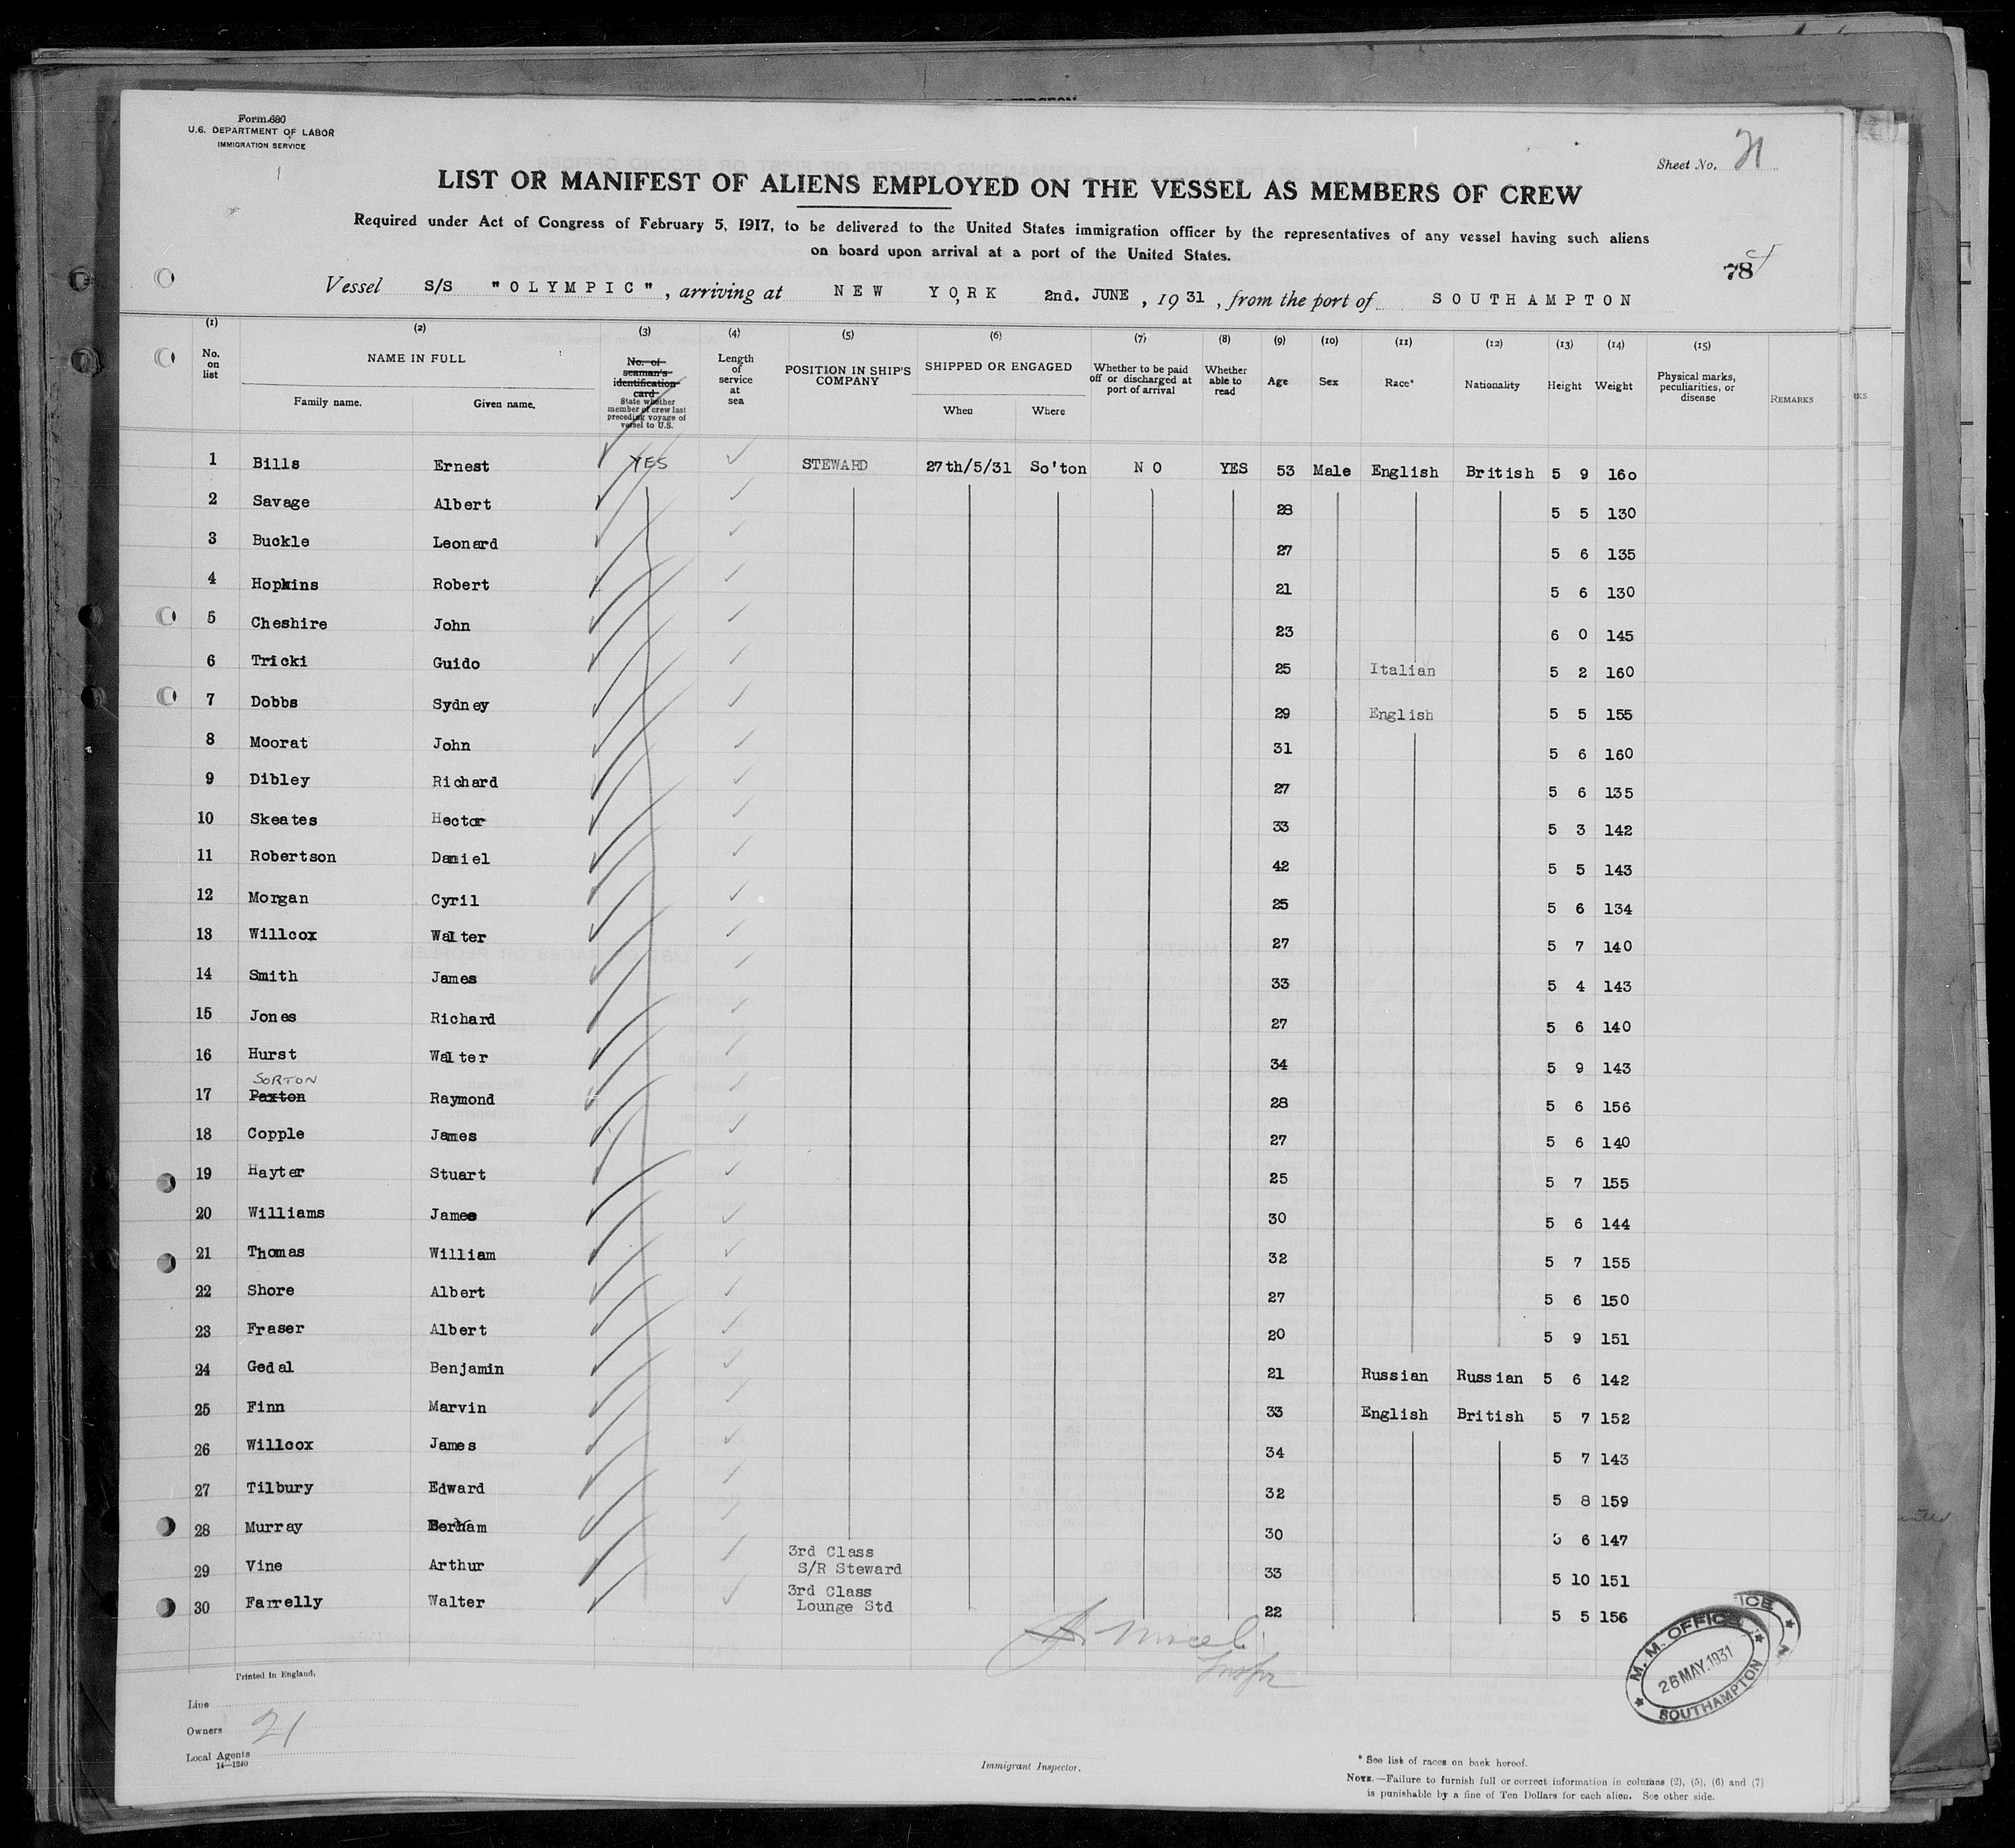 Form 680
U.S. DEPARTMENT OF LABOR
IMMIGRATION SERVICE
Sheet No. 21
LIST OR MANIFEST OF ALIENS EMPLOYED ON THE VESSEL AS MEMBERS OF CREW
Required under Act of Congress of February 5, 1917, to be delivered to the United States immigration officer by the representatives of any vessel having such aliens
on board upon arrival at a port of the United States.
78
Vessel S/S "OLYMPIC", arriving at NEW YORK, 2nd. JUNE, 1931, from the port of SOUTHAMPTON
(1) (2) (3) (4) (5) (6) (7) (8) (9) (10) (11) (12) (13) (14) (15)
No. on list
NAME IN FULL
Family name. Given name.
No. of seaman's identification card
State whether member of crew last preceding voyage of vessel to U.S.
Length of service at sea
POSITION IN SHIP'S COMPANY
SHIPPED OR ENGAGED
When Where
Whether to be paid off or discharged at port of arrival
Whether able to read
Age Sex Race* Nationality Height Weight
Physical marks, peculiarities, or disease
REMARKS
1 Bills Ernest YES STEWARD 27th/5/31 So'ton NO YES 53 Male English British 5 9 160
2 Savage Albert 28 5 5 130
3 Buckle Leonard 27 5 6 135
4 Hopkins Robert 21 5 6 130
5 Cheshire John 23 6 0 145
6 Tricki Guido 25 Italian 5 2 160
7 Dobbs Sydney 29 English 5 5 155
8 Moorat John 31 5 6 160
9 Dibley Richard 27 5 6 135
10 Skeates Hector 33 5 3 142
11 Robertson Daniel 42 5 5 143
12 Morgan Cyril 25 5 6 134
13 Willcox Walter 27 5 7 140
14 Smith James 33 5 4 143
15 Jones Richard 27 5 6 140
16 Hurst Walter 34 5 9 143
SORTON
17 Paxton Raymond 28 5 6 156
18 Copple James 27 5 6 140
19 Hayter Stuart 25 5 7 155
20 Williams James 30 5 6 144
21 Thomas William 32 5 7 155
22 Shore Albert 27 5 6 150
23 Fraser Albert 20 5 9 151
24 Gedal Benjamin 21 Russian Russian 5 6 142
25 Finn Marvin 33 English British 5 7 152
26 Willcox James 34 5 7 143
27 Tilbury Edward 32 5 8 159
28 Murray 30 5 6 147
29 Vine Arthur 3rd Class S/R Steward 33 5 10 151
30 Farrelly Walter 3rd Class Lounge Std 22 5 5 156
M. M. OFFICE
26 MAY. 1931
SOUTHAMPTON
Printed in England.
Line
Owners 21
Local Agents
14—1240
Immigrant Inspector.
* See list of races on back hereof.
NOTE.—Failure to furnish full or correct information in columns (2), (5), (6) and (7)
is punishable by a fine of Ten Dollars for each alien. See other side.